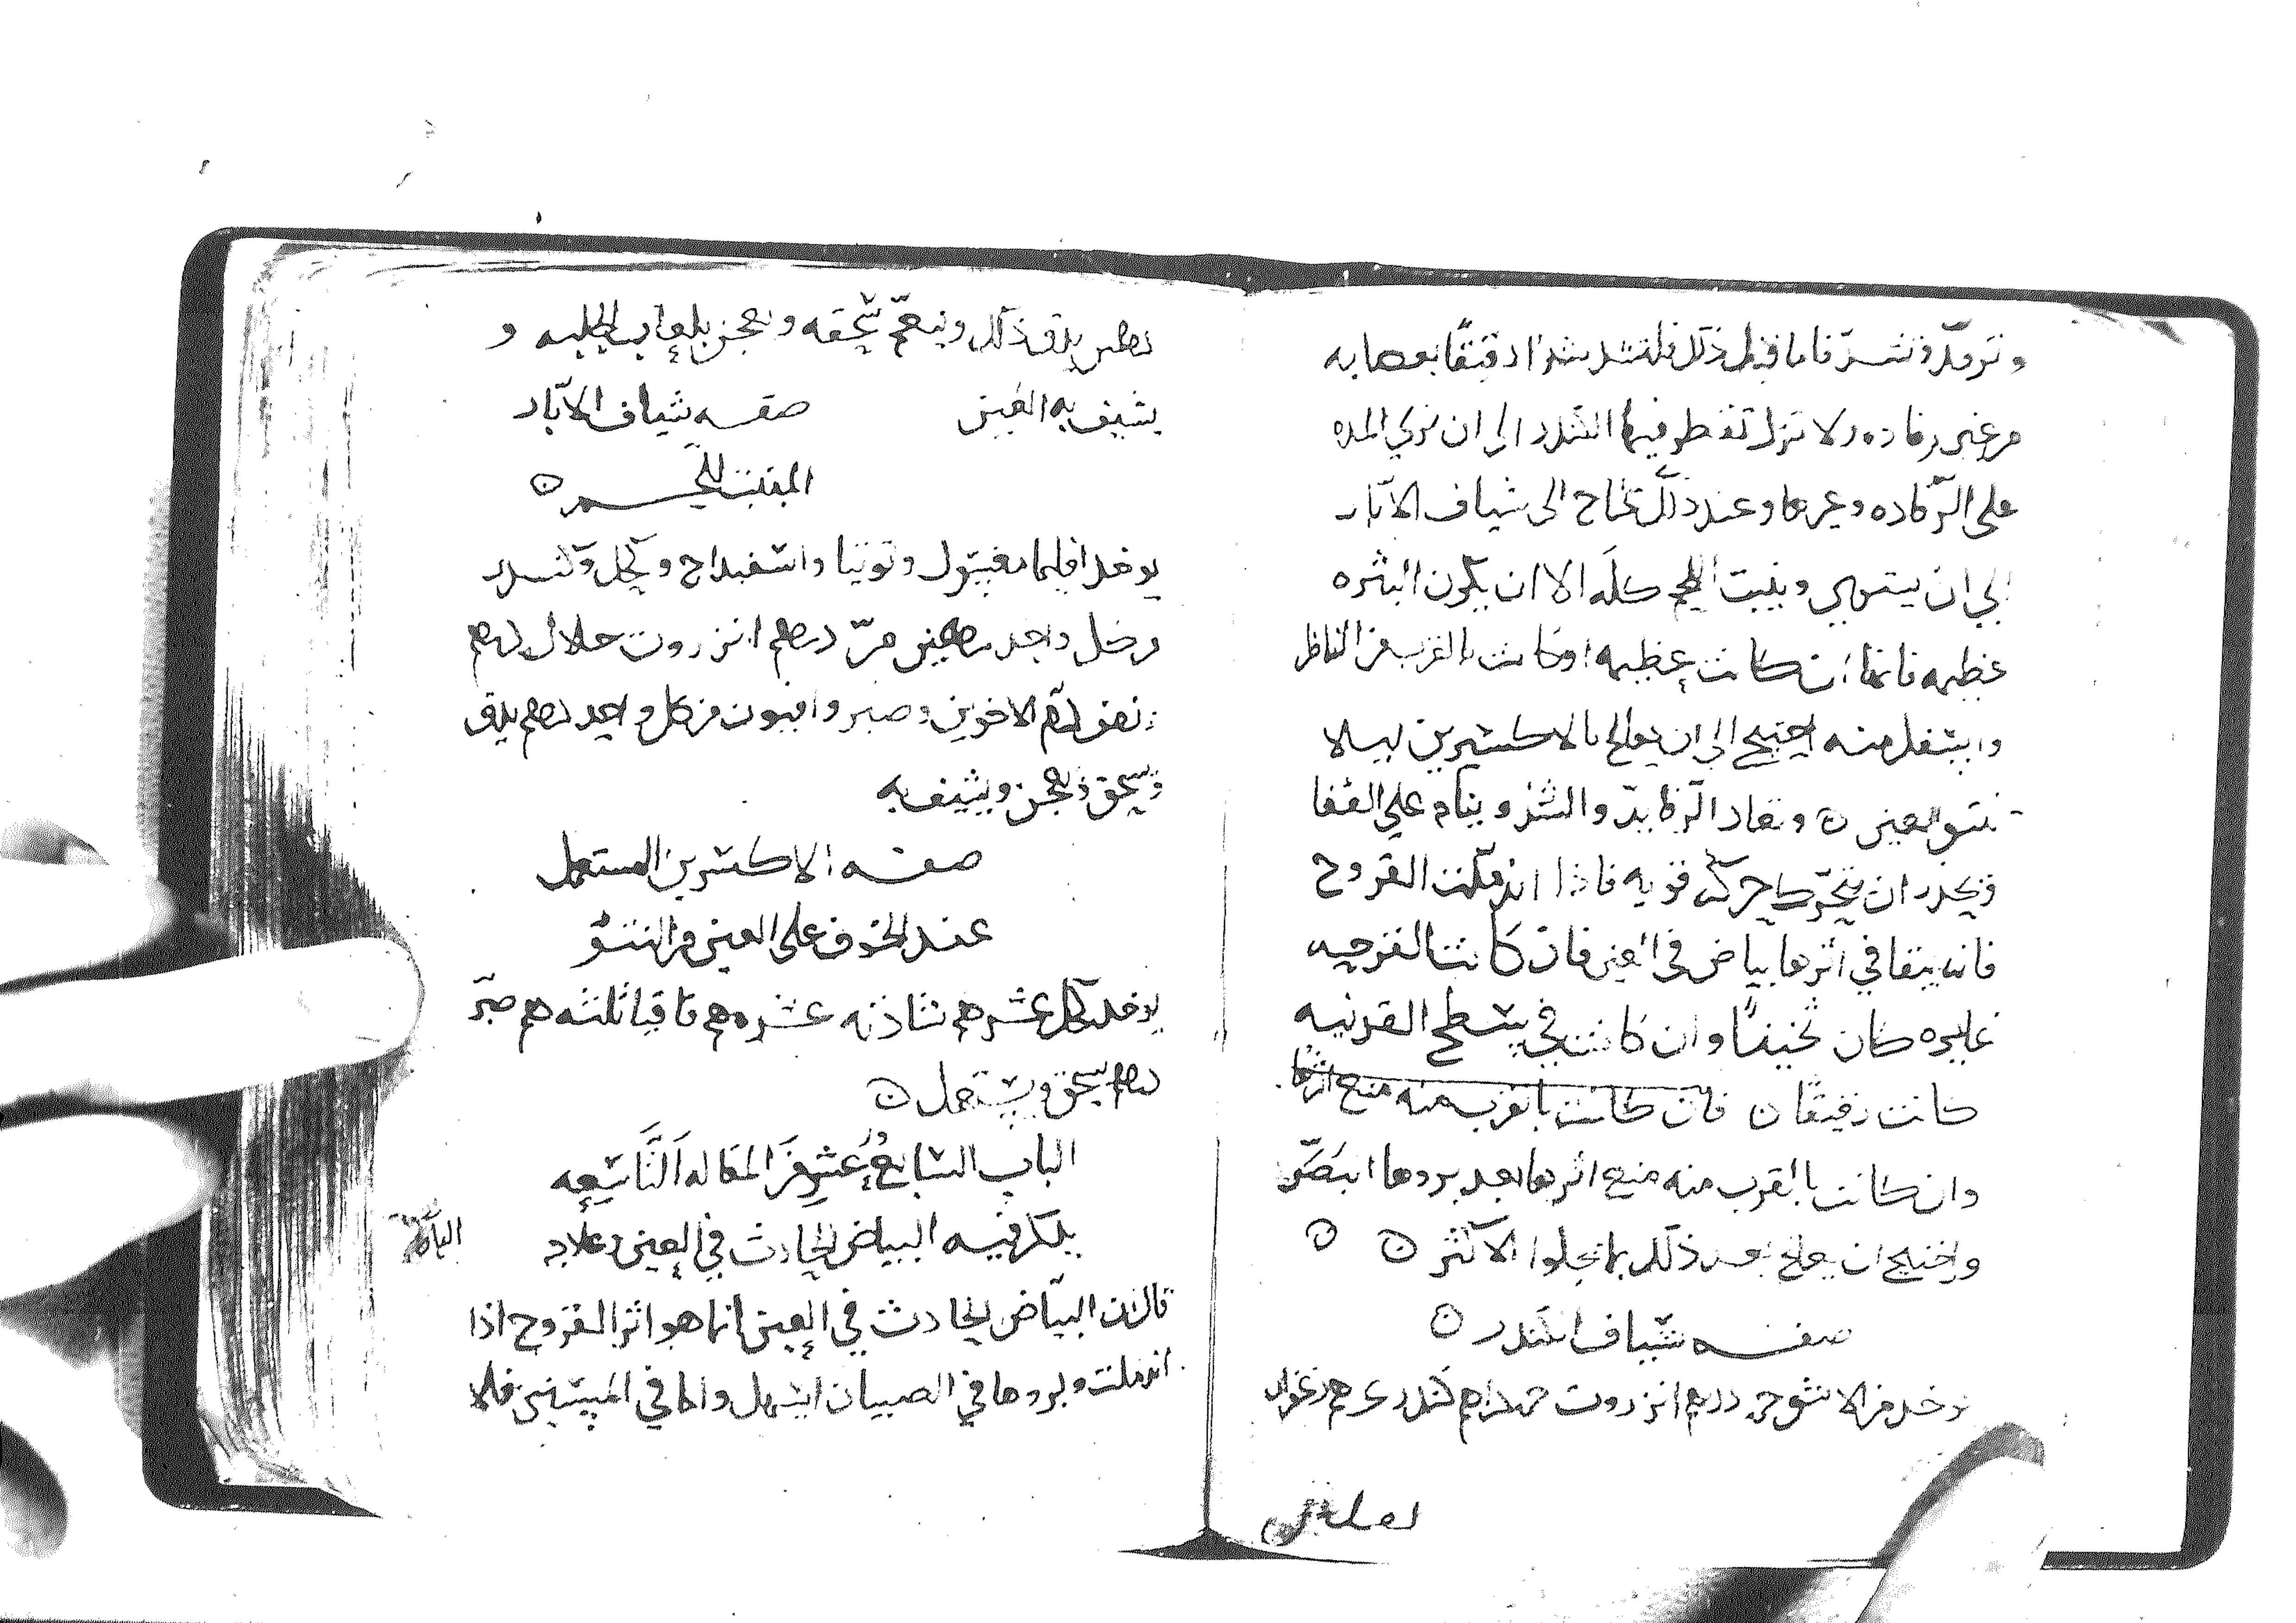 وترفده وتشده فاما قبل ذلك فلتشد شدا دقيقا بعصابه
من غير رفاده ولا تزل تقطر فيها الكندر الى ان تري المده
على الرفاده وغيرها وعند ذلك تحتاج الى شياف الابار
الى ان يستوي وينبت اللحم كله الا ان يكون البثره
عظيمه فانها ان كانت عظيمه او كانت بالقرب من الناظر
واسفل منه احتيج الى ان يعالج بالاكسيرين ليلا
تنتو العين ن وتعاد الرفايد والشد وينام على القفا
ويحذر ان يتحرك حركه قويه فاذا اندملت القروح
فانه يبقا في اثرها بياض في العين فان كانت القرحه
غايره كان ثخينًا وان كانت في سطح القرنيه
كانت رقيقًا ن فان كانت بالقرب منه منع اثرها
وان كانت بالقرب منه منع اثرها بعد بروها البصر
واحتيج ان يعالج بعد ذلك بما يجلوا الاثر ن ن
صفه شياف الكندر ن
يوخذ من الاشق درهم انزروت دراهم كندر زعفران
نطس يدق ذلك وينعم سحقه ويعجن بلعاب الحلبه و
يشيف به العين صفه شياف الابار
المنبت للحم ن
يوخذ اقليميا مغسول وتوتيا واسفيداج وكحل وكندر
من كل واحد درهمين مر درهم انزروت حلال درهم
ونصف دم الاخوين وصبر وافيون من كل واحد درهم يدق
ويسحق ويعجن ويشيف به
صفه الاكسرين المستعمل
عند الخوف على العين من النتو
يوخذ كحل عشره دراهم شاذنه عشره دراهم اقاقيا ثلثه دراهم صبر
درهم يسحق ويستعمل ن
الباب السابع عشر من المقاله التاسعه
يذكر فيه البياض الحادث في العين وعلاجه
قال ان البياض الحادث في العين انما هو اثر القروح اذا
اندملت وبروها في الصبيان اسهل واما في المسنين فلا